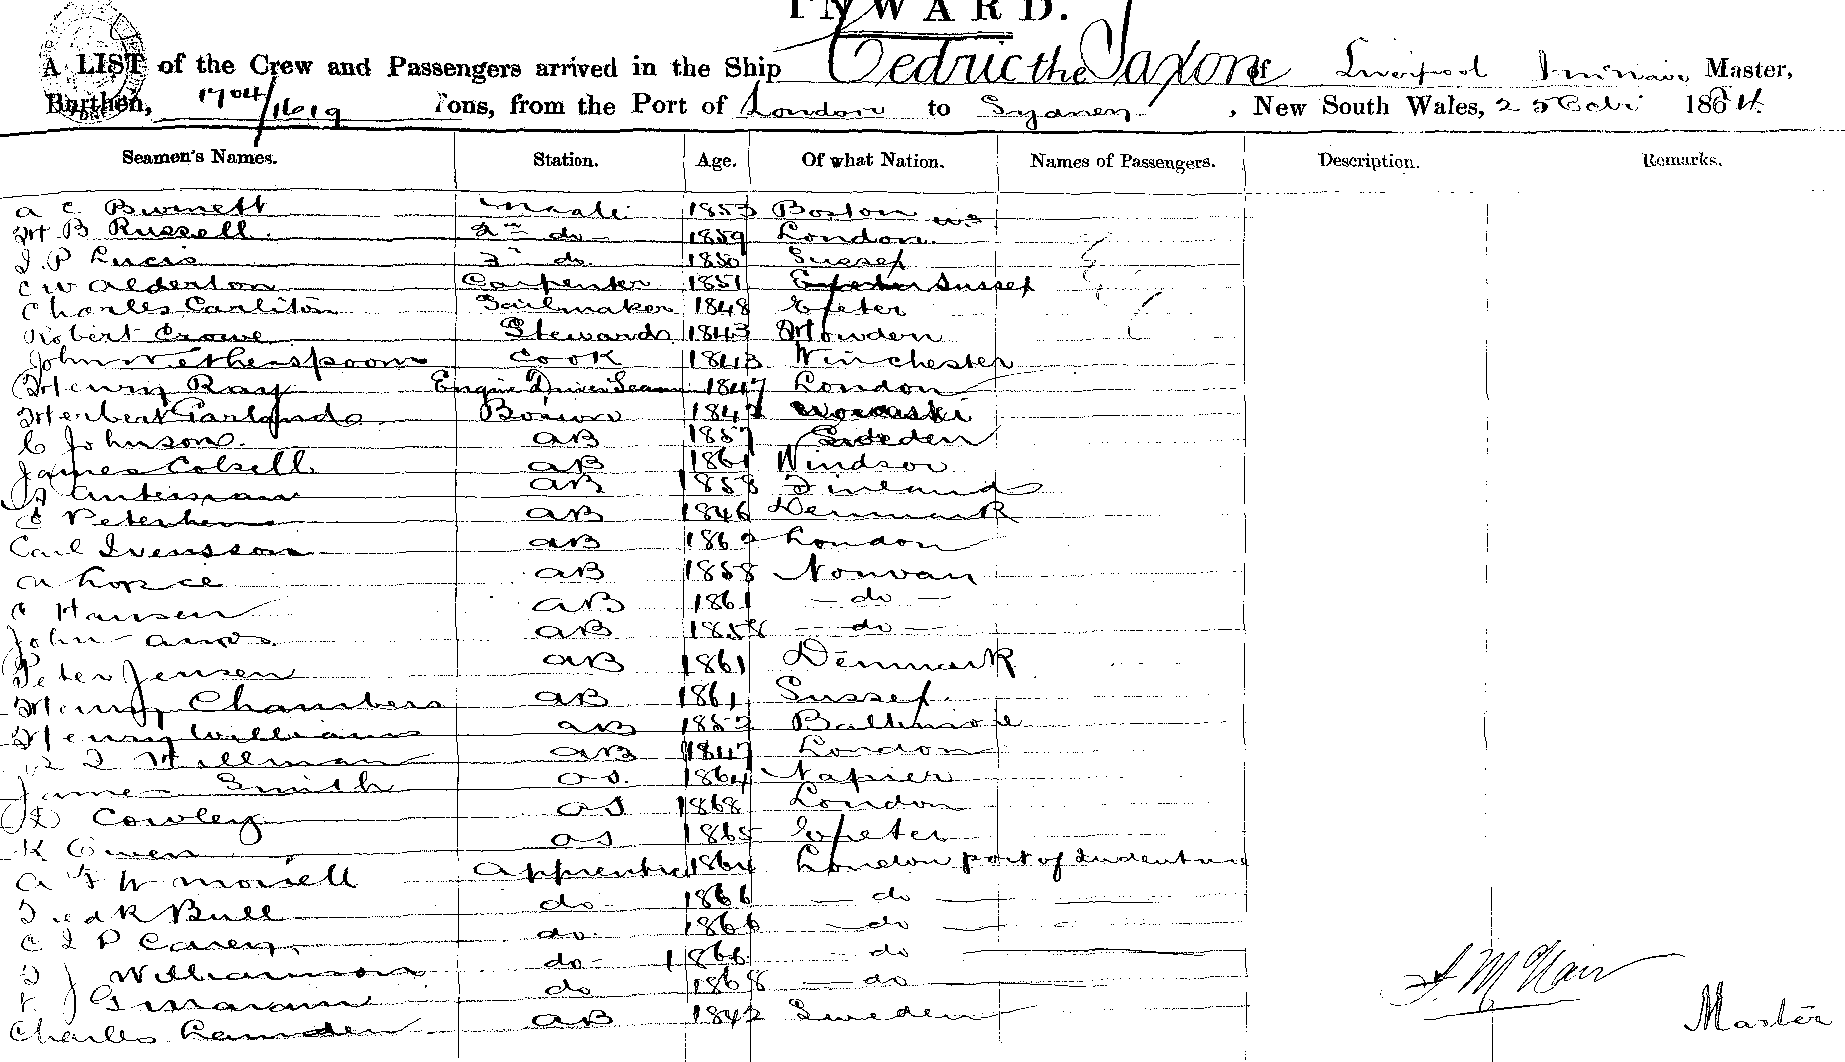 INWARD.
A LIST of the Crew and Passengers arrived in the Ship Cedric the Saxon of Liverpool Master,
Burthen, 1704/1619 Tons, from the Port of London to Sydney, New South Wales, 25 Octr 1884
Seamen's Names. Station. Age. Of what Nation. Names of Passengers. Description. Remarks.
A C Burnett Mate 1853 Boston US
H B Russell 2nd do 1859 London
J. P Lucas 3rd do 1850 Sussex
C W Alderton Carpenter 1851 Exeter Sussex
Charles Carlton Sailmaker 1848 Exeter
Robert Crowe Steward 1843 Howden
John Wetherspoon Cook 1843 Winchester
Henry Ray Engine Driver Seaman 1847 London
Herbert Garlands Bosun 1842
C Johnson. AB 1857 Sweden
James Colsell AB 1861 Windsor
AB 1858 Finland
C Petersen AB 1846 Denmark
Carl Svensson AB 1862 London
AB 1858 Norway
C Hansen AB 1861 — do —
John AB 1858 — do —
Peter Jensen AB 1861 Denmark
Henry Chambers AB 1861 Sussex
Henry Williams AB 1852 Baltimore
Hillman AB 1847 London
James Smith OS. 1864 Napier
Cowley OS 1868 London
K Owen OS 1865 Exeter
A F W Morsell Apprentice 1864 London port of Indenture
Fredk Bull do 1866 — do —
C J P Carey do 1866 — do —
J Williamson do 1866 do
do 1868 — do —
Charles Lamden AB 1842 Sweden
J. McNair
Master